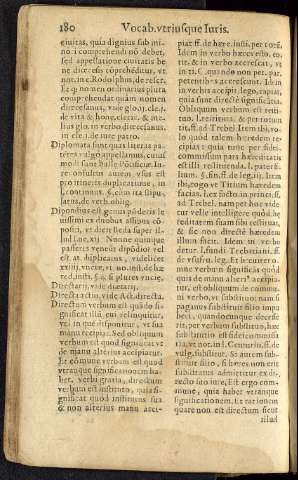 180 Vocab.vtriusque Iuris.
ciuitas, quia dignius sub mi
nori comprehendi nō debet,
sed appellatione ciuitatis be
ne diœcesis cōprehēditur, vt
not. inc. Rodulphus, de rescr.
Et q nomen ordinarius plura
comprehendat quàm nomen
diœcesanus, vide glo. j. cle. j.
de vita & hone. cleric. & me-
lius glo. in verbo diœcesanus,
in cle. j. de iure patro.
Diplomata sunt quas literas pa
tētes vulgò appellamus, eaqué
modi sunt
re consulti autem vsus est
pro itineris duplicatione, in
l. continuus. §. cùm ita stipu-
latus, de verb. oblig.
Dipondius est genus pōderis le
uissimi ex duobus assibus cō-
positi, vt dicit beda super il-
lud Luc. xij. Nonne quinque
passeres veneūt dipōdio? vel
est as duplicatus, videlicet
xxiiij. vnciæ, vt no. insti. de hæ
red. insti. §. si plures vnciæ.
Directarij, vide dietarij.
Directa actio, vide Ad. directa.
Directum verbum est quādo si-
gnificat illū cui relinquitur,
vel in quē disponitur, vt sua
manu recipiat. Sed obliquum
verbum est quod significat vt
de manu alterius accipiatur.
Et cōmune verbum est quod
vtranque significationem ha
bet, verbi gratia, directum
verbum est instituo, quia si-
gnificat quòd institutus sua
& non alterius manu acci-
piat ff. de hære. insti. per totū.
Idem in verbo hæres esto, eo.
tit. & in verbo accrescat, vt
in ti. C. quando non pet. par.
petentib. accrescant. Idem
in verbis accipit, lego, capiat,
quia sunt directè significatiua.
Obliquum verbum est resti-
tuo, l. restituta, & per totum
tit. ff. ad Trebel. Item ibi, vo-
lo quòd talem hæredem re-
cipias: quia tunc per fidei-
commissum para hæreditatis
est illi restituenda, l. pater fi-
lium. §. fin. ff. de leg. iij. Item
ibi, rogo vt Titium hæredem
facias, l. ex facto. in princi. ff.
ad Trebel. nam per hoc vide
tur velle intelligere quòd hæ
reditatem suam sibi restituat,
& sic non directè hæredem
illum facit. Idem in verbo
detur. l. fundi Trebatiani. ff.
de vsufru. leg. Et breuiter o-
mne verbum significās quòd
quis de manu alteri⁹ accipia-
tur, est obliquum de commu
ni verbo, vt substituo: nam si
paganus substituit filio impu
beri, quandocunque decesse
rit, per verbum substituo, hæc
substitutio est fideicommissa
ria, vt not. inf. Centurio. ff. de
vulg. substitut. Si autem sub-
stituit filio, si hæres non erit
substitutus admittitur ex di-
recto suo iure. Est ergo com-
mune, quia habet vtranque
significationem. Et rationem
quare non est directum sicut
illud